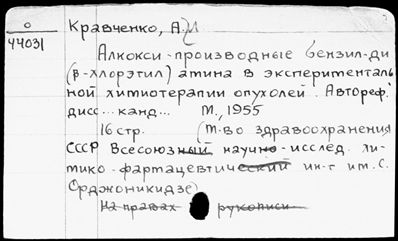 О
44031
Кравченко, А.И
Алкокси-производные бензил-ди
(β-хлорэтил) амина в эксперименталь
ной химиотерапии опухолей. Автореф.
дисс... канд... М., 1955
16 стр. (М-во здравоохранения
СССР Всесоюзный научно-исслед. хи-
мико-фармацевтический ин-т им. С.
Орджоникидзе)
На правах рукописи